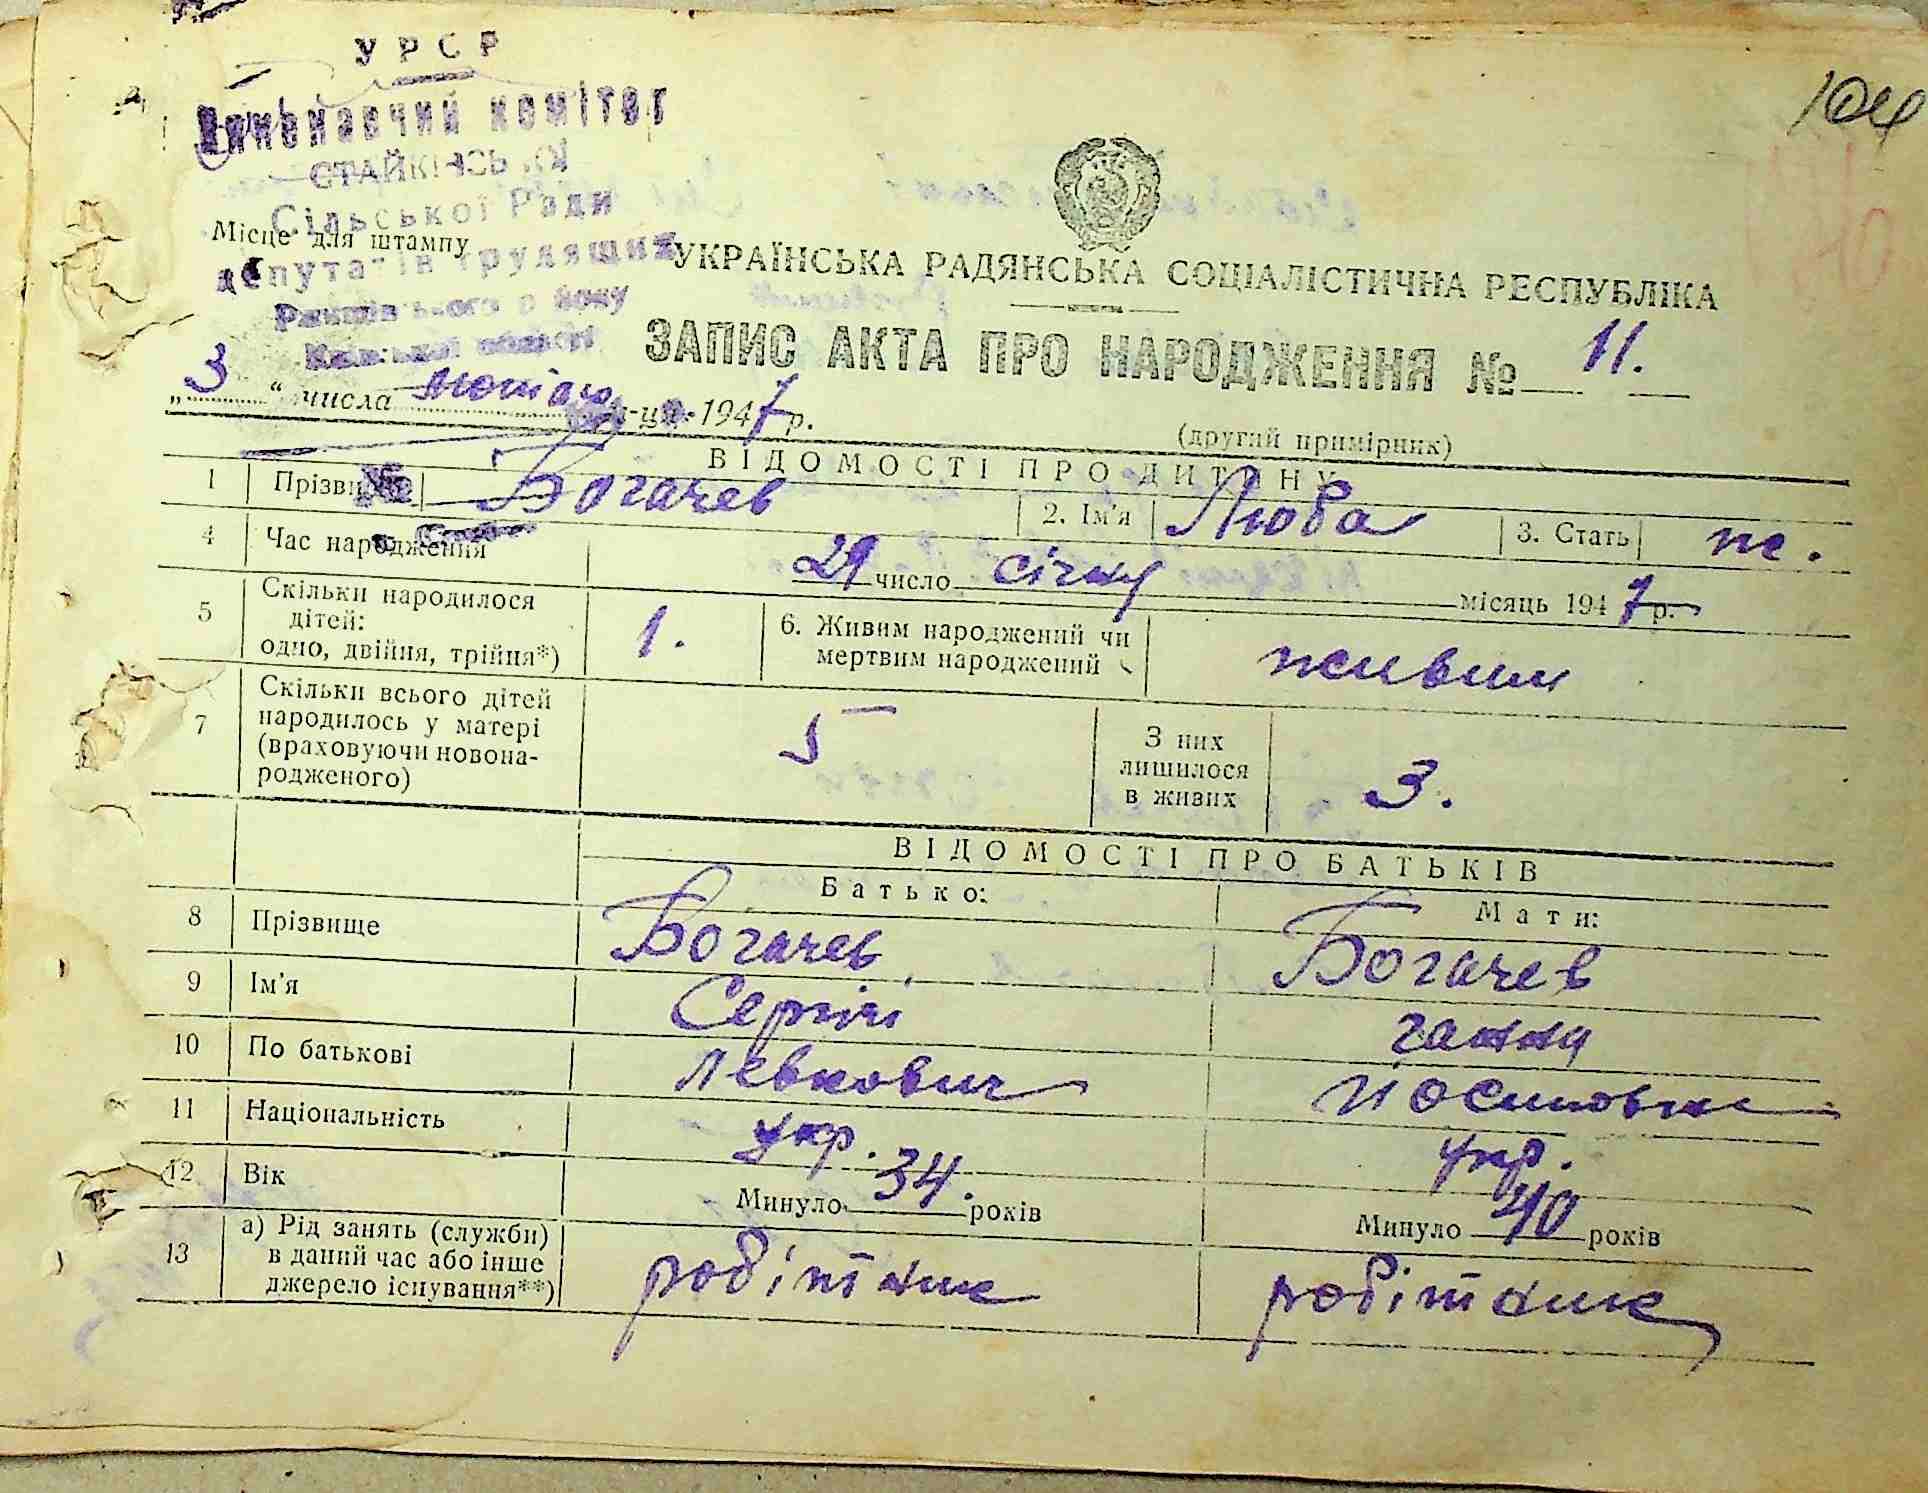 104
УРСР
Виконавчий комітет
СТАЙКІВСЬКОЇ
Сільської Ради
Місце для штампу
депутатів трудящих
Ржищівського району
Київської області
УКРАЇНСЬКА РАДЯНСЬКА СОЦІАЛІСТИЧНА РЕСПУБЛІКА
ЗАПИС АКТА ПРО НАРОДЖЕННЯ № 11.
„3“ числа лютого м-ця 1947 р.
(другий примірник)
ВІДОМОСТІ ПРО ДИТИНУ
1 Прізвище Богачев 2. Ім'я Люба 3. Стать ж.
4 Час народження 29 число січня місяць 1947 р.
5 Скільки народилося дітей: одно, двійня, трійня*) 1. 6. Живим народжений чи мертвим народжений живим
7 Скільки всього дітей народилось у матері (враховуючи новона-родженого) 5 З них лишилося в живих 3.
ВІДОМОСТІ ПРО БАТЬКІВ
Батько: Мати:
8 Прізвище Богачев Богачев
9 Ім'я Сергій Ганна
10 По батькові Левкович Йосиповна
11 Національність укр. укр.
12 Вік Минуло 34. років Минуло 40 років
13 а) Рід занять (служби) в даний час або інше джерело існування**) робітник робітник